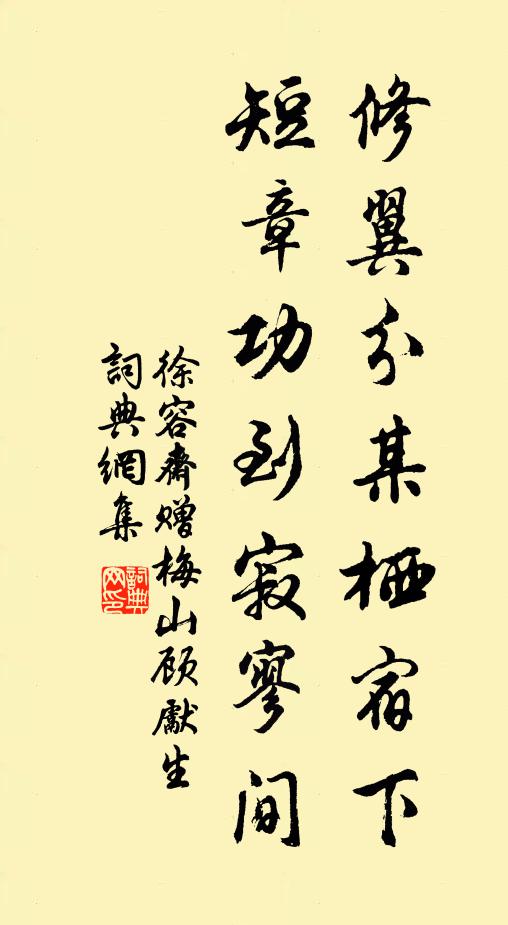 修翼分某栖宿下
短章功到寂寥间
徐容齋赠梅山顾獻生
詞典網集
詞典網印